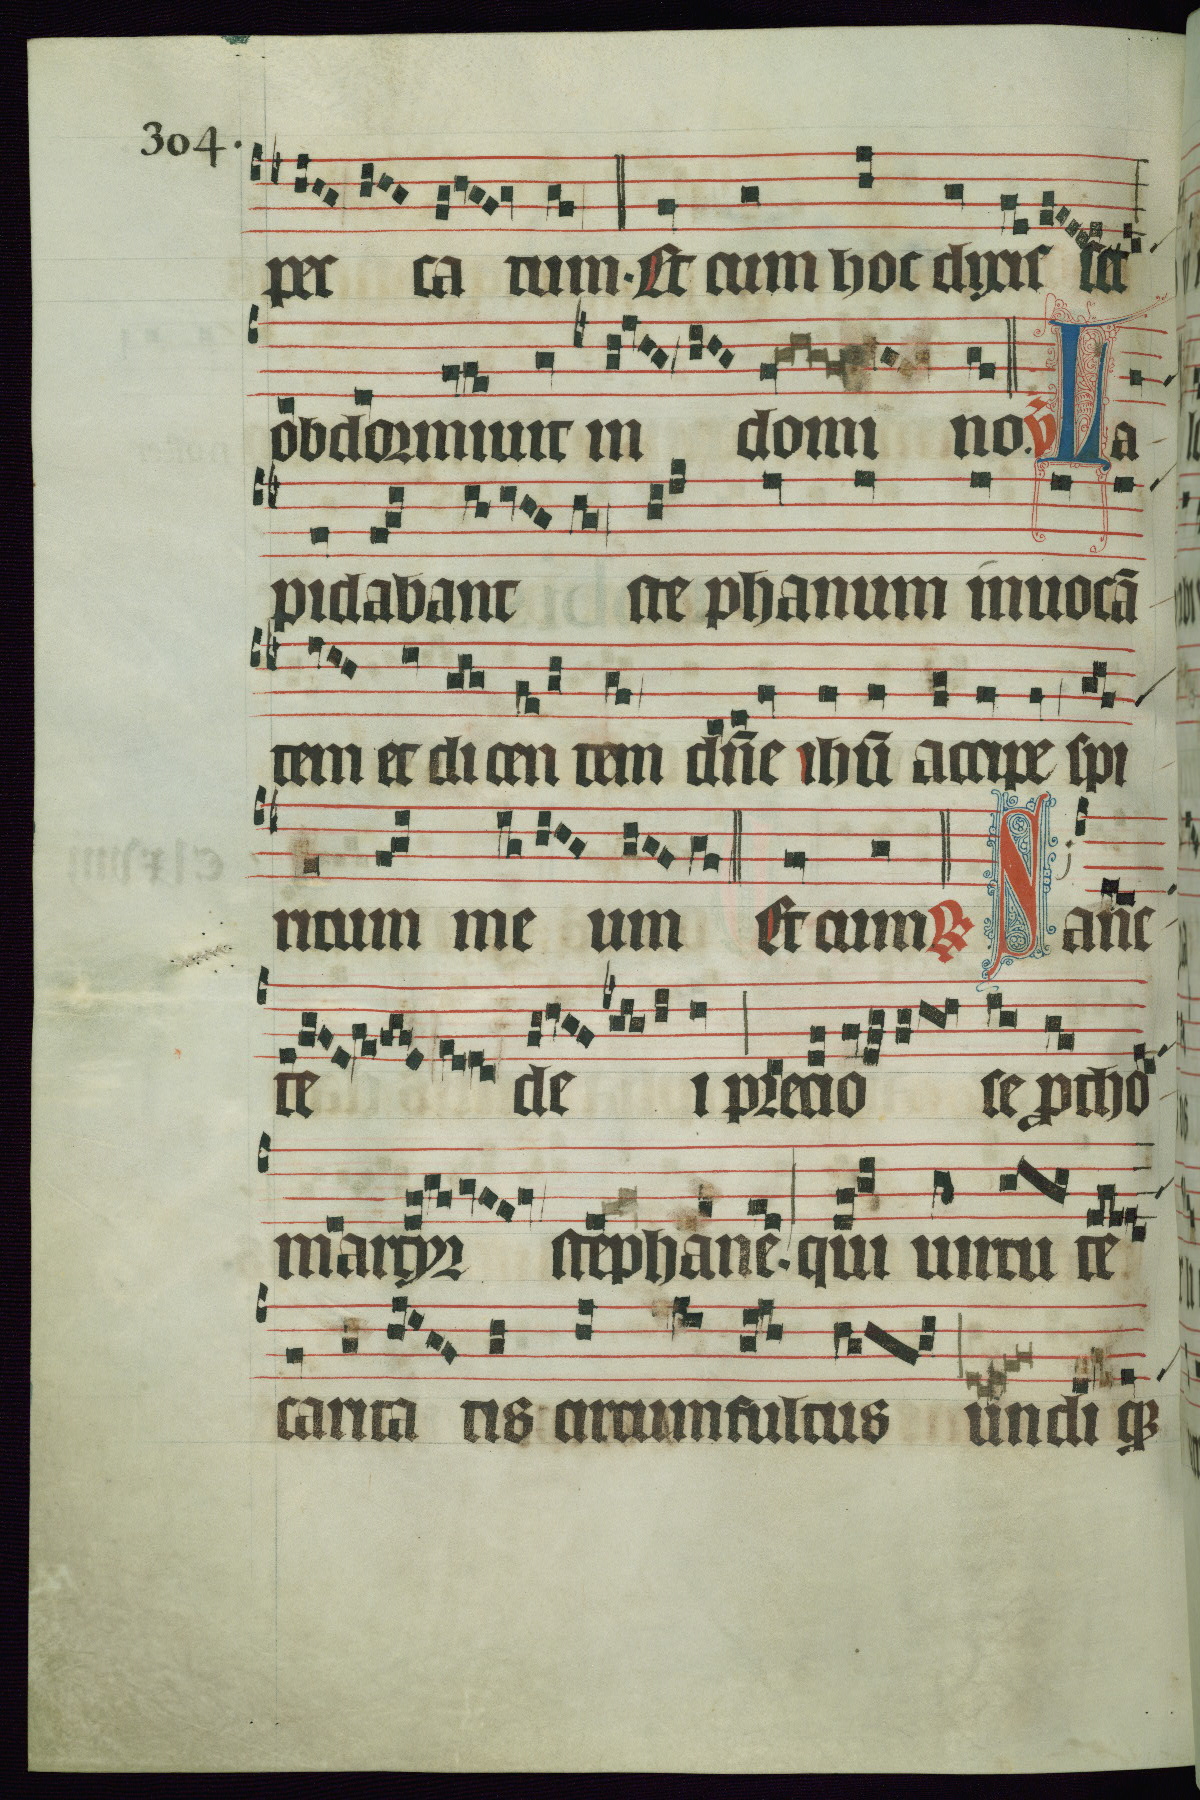 304.
pec ca tum. Et cum hoc dixis set
obdormiuit in domi no. v̄ La
pidabant ste phanum inuocā
tem et di cen tem dn̄e ihū accipe spi
ritum me um Et cum R Sanc
te de i precio se ꝓtho
martyr stephane. qui uirtu te
carita tis circumfultus undi qꝫ